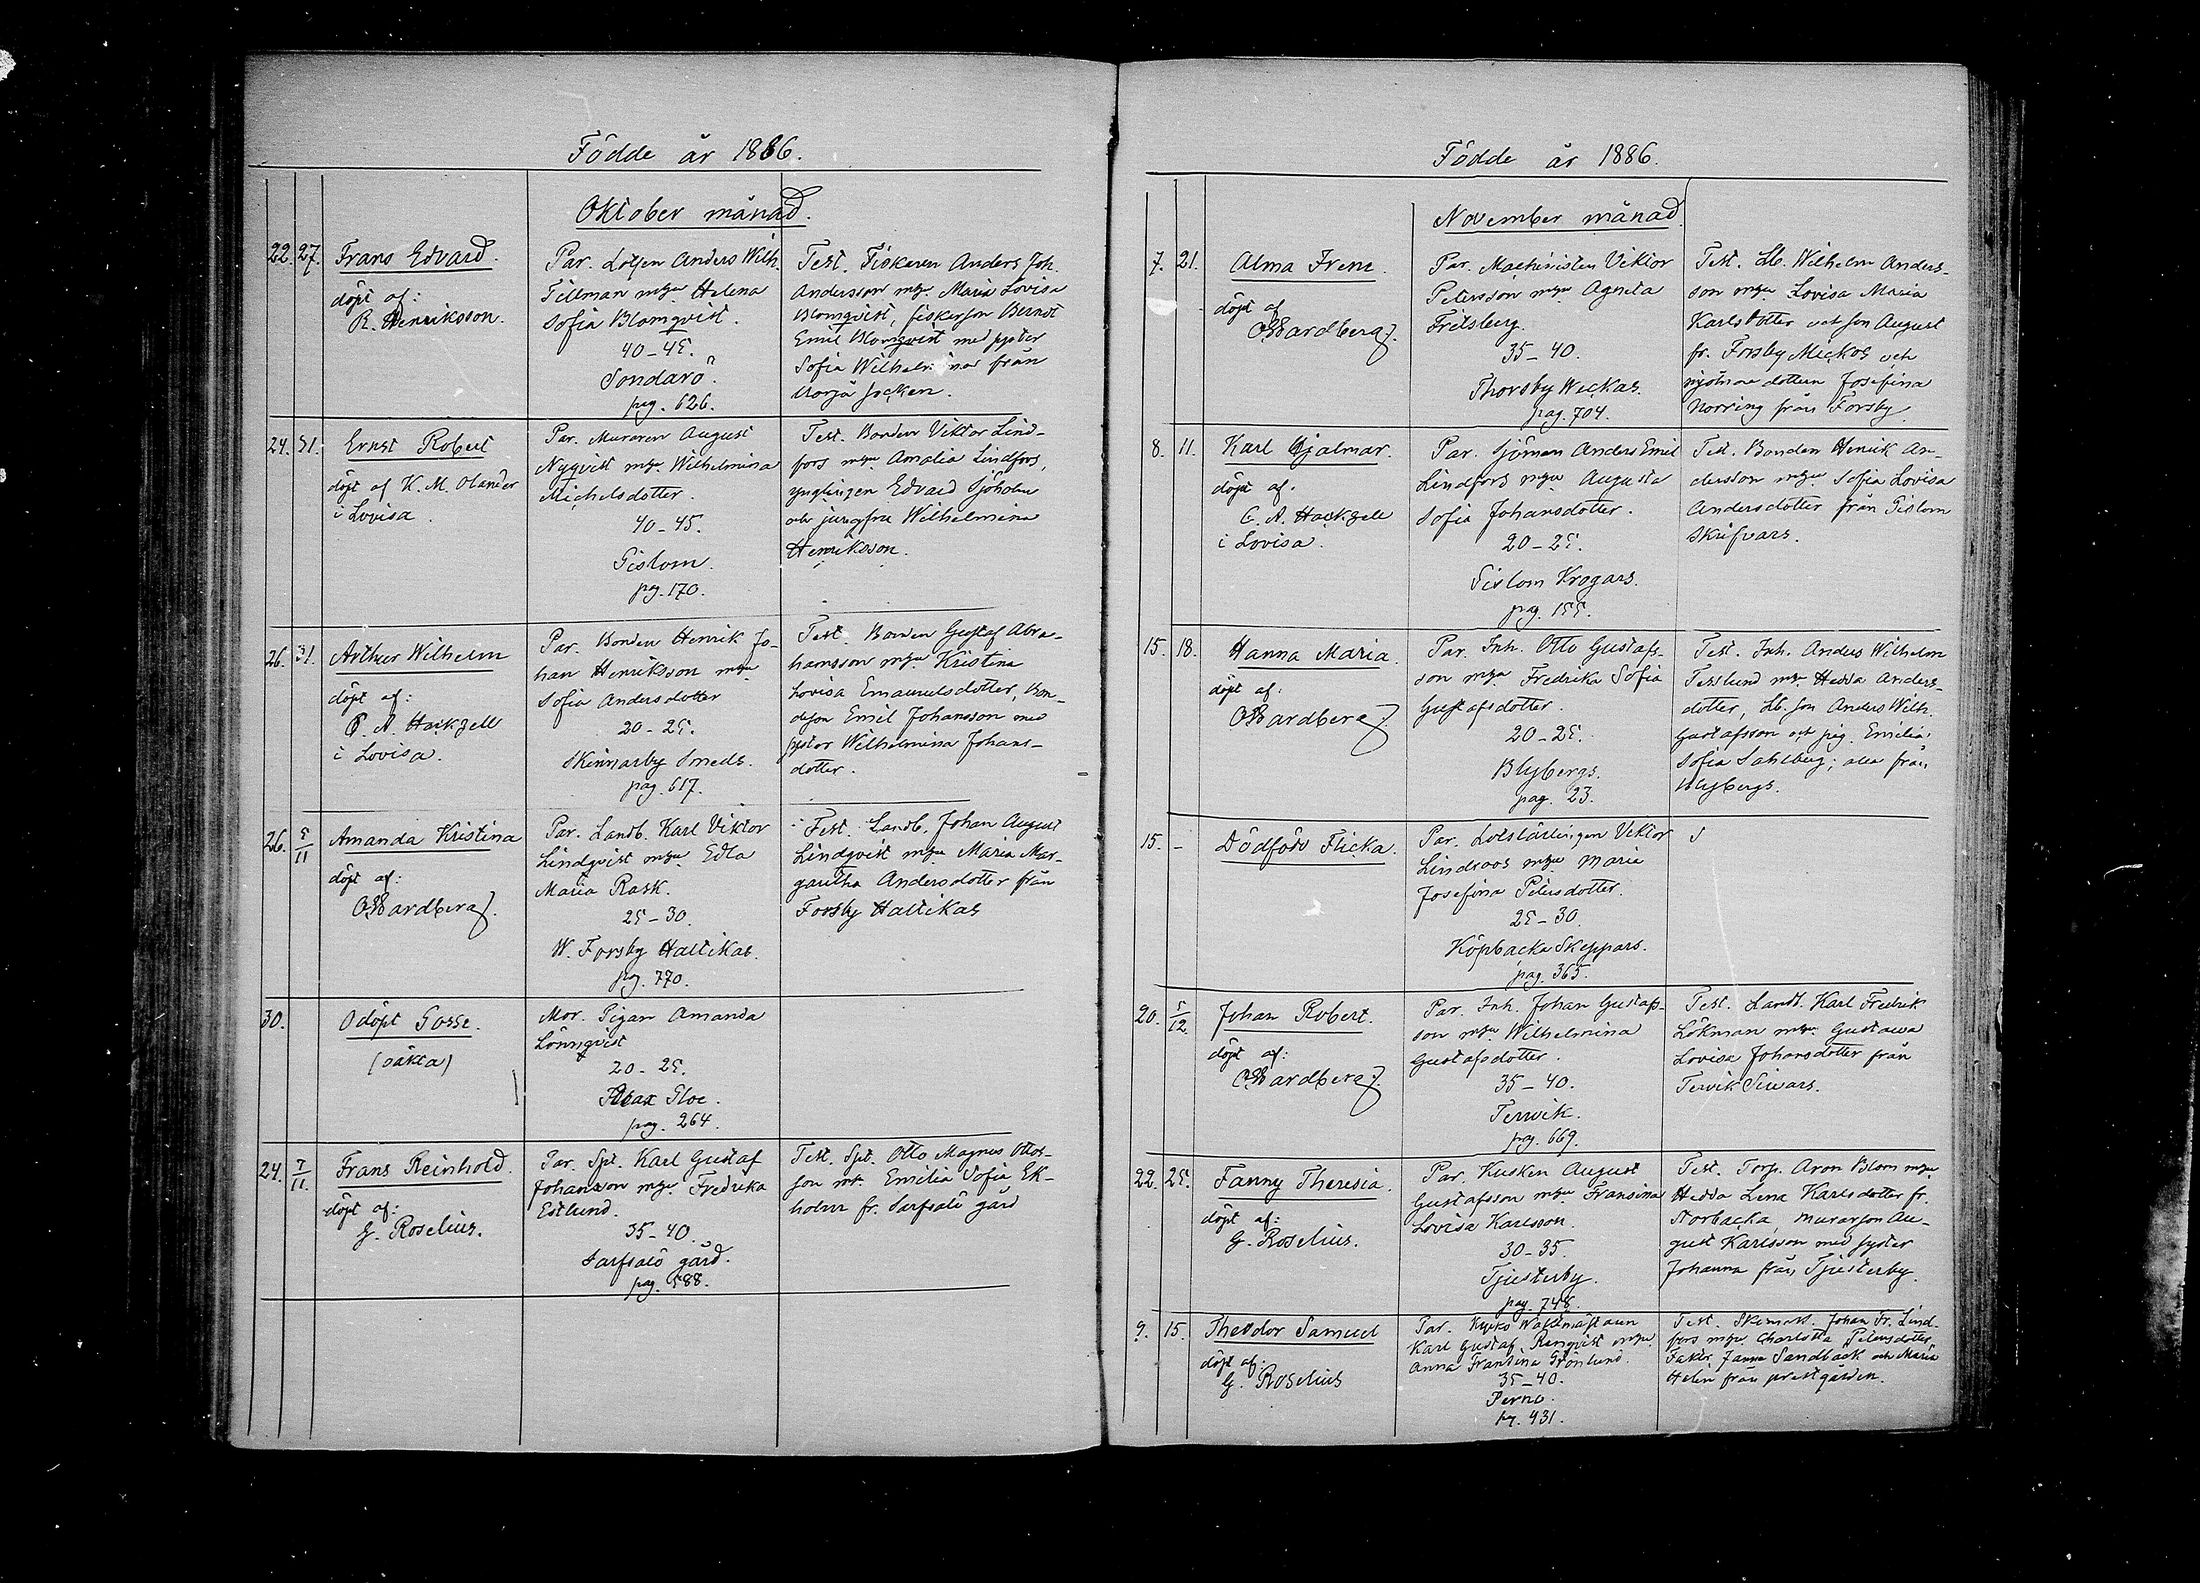 Födde år 1886.
Oktober månad.
22. 27. Frans Edvard.
döpt af:
R. Henriksson.
Par. Lotsen Anders Wilh.
Tillman m. h. Helena
Sofia Blomqvist.
40-45.
Sondarö.
pag. 626.
Test. Fiskaren Anders Joh.
Andersson Maria Lovisa
Blomqvist, fiskarson Berndt
Emil Blomqvist med syster
Sofia Wilhelmina från
Borgå socken.
24. 31. Ernst Robert
döpt af K. M. Olander
i Lovisa.
Par. Muraren August
Nyqvist Wilhelmina
Michelsdotter.
40-45.
Gislom.
pg. 170.
Test. Bonden Viktor Lind-
fors Amalia Lindfors,
ynglingen Edvard Sjöholm
och jungfru Wilhelmina
Henriksson.
26. 31. Arthur Wilhelm
döpt af:
C. A. Hackzell
i Lovisa.
Par. Bonden Henrik Jo-
han Henriksson
Sofia Andersdotter
20-25.
Skinnarby Smeds.
pag. 617.
Test. Bonden Gustaf Abra-
hamsson Kristina
Lovisa Emanuelsdotter, Bon-
deson Emil Johansson med
syster Wilhelmina Johans-
dotter.
26. 5/11 Amanda Kristina
döpt af:
O. Wardberg.
Par. Landb. Karl Viktor
Lindqvist Edla
Maria Rask.
25-30.
W. Forsby Hallikas.
pg. 770.
Test. Landb. Johan August
Lindqvist Maria Mar-
garitha Andersdotter från
Forsby Hallikas
30. Odöpt Gosse.
(oäkta)
Mor. Pigan Amanda
Lönnqvist
20-25.
Tloe.
pag. 264.
24. 7/11. Frans Reinhold.
döpt af:
G. Roselius.
Par. Spt. Karl Gustaf
Johansson Fredrika
Estlund.
35-40.
Sarfsalö gård.
pag. 588.
Test. Spt. Otto Magnus Ottos-
son Emilia Sofia Ek-
holm fr. Sarfsalö gård
Födde år 1886.
November månad
7. 21. Alma Irene.
döpt af
O. Wardberg.
Par. Machinisten Viktor
Petersson Agneta
Fritsberg.
35-40.
Thorsby Weckas.
pag. 704.
Test. Lb. Wilhelm Anders-
son Lovisa Maria
Karlsdotter och son August
fr. Forsby Mickos och
mjölnare dottern Josefina
Norring från Forsby.
8. 11. Karl Hjalmar.
döpt af.
C. A. Hackzell
i Lovisa.
Par. Sjöman Anders Emil
Lindfors Augusta
Sofia Johansdotter.
20-25.
Gislom Krogars.
pag. 155.
Test. Bonden Henrik An-
dersson Sofia Lovisa
Andersdotter från Gislom
Skrifvars.
15. 18. Hanna Maria.
döpt af:
O. Wardberg.
Par. Inh. Otto Gustafs-
son Fredrika Sofia
Gustafsdotter.
20-25.
Blybergs.
pag. 23.
Test. Inh. Anders Wilhelm
Terslund Hedda Anders-
dotter, Lb. son Anders Wilh.
Gustafsson och pig. Emilia
Sofia Sahlberg; alla från
Blybergs.
15. - Dödfödd Flicka.
Par. Lotslärlingen Viktor
Lindroos Maria
Josefina Petersdotter.
25-30
Köpbacka Skeppars.
pag. 365.
20. 5/12. Johan Robert.
döpt af:
O. Wardberg.
Par. Inh. Johan Gustafs-
son Wilhelmina
Gustafsdotter.
35-40.
Terwik.
pg. 669.
Test. Landb. Karl Fredrik
Lökman Gustava
Lovisa Johansdotter från
Terwik Siwars.
22. 25. Fanny Theresia.
döpt af:
G. Roselius.
Par. Kusken August
Gustafsson Fransina
Lovisa Karlsson.
30-35.
Tjusterby.
pag. 748.
Test. Torp. Aron Blom
Hedda Lena Karlsdotter fr.
Storbacka, Murarson Au-
gust Karlsson med syster
Johanna från Tjusterby.
9. 15. Theodor Samuel
döpt af:
G. Roselius
Par. Kyrko Waktmästaren
Karl Gustaf Renqvist
Anna Fransina Grönlund.
35-40.
Perno.
pg. 431.
Test. Johan Fr. Lind-
fors Charlotta Petersdotter,
Janne Sandbäck och Maria
Helen från prestgården.